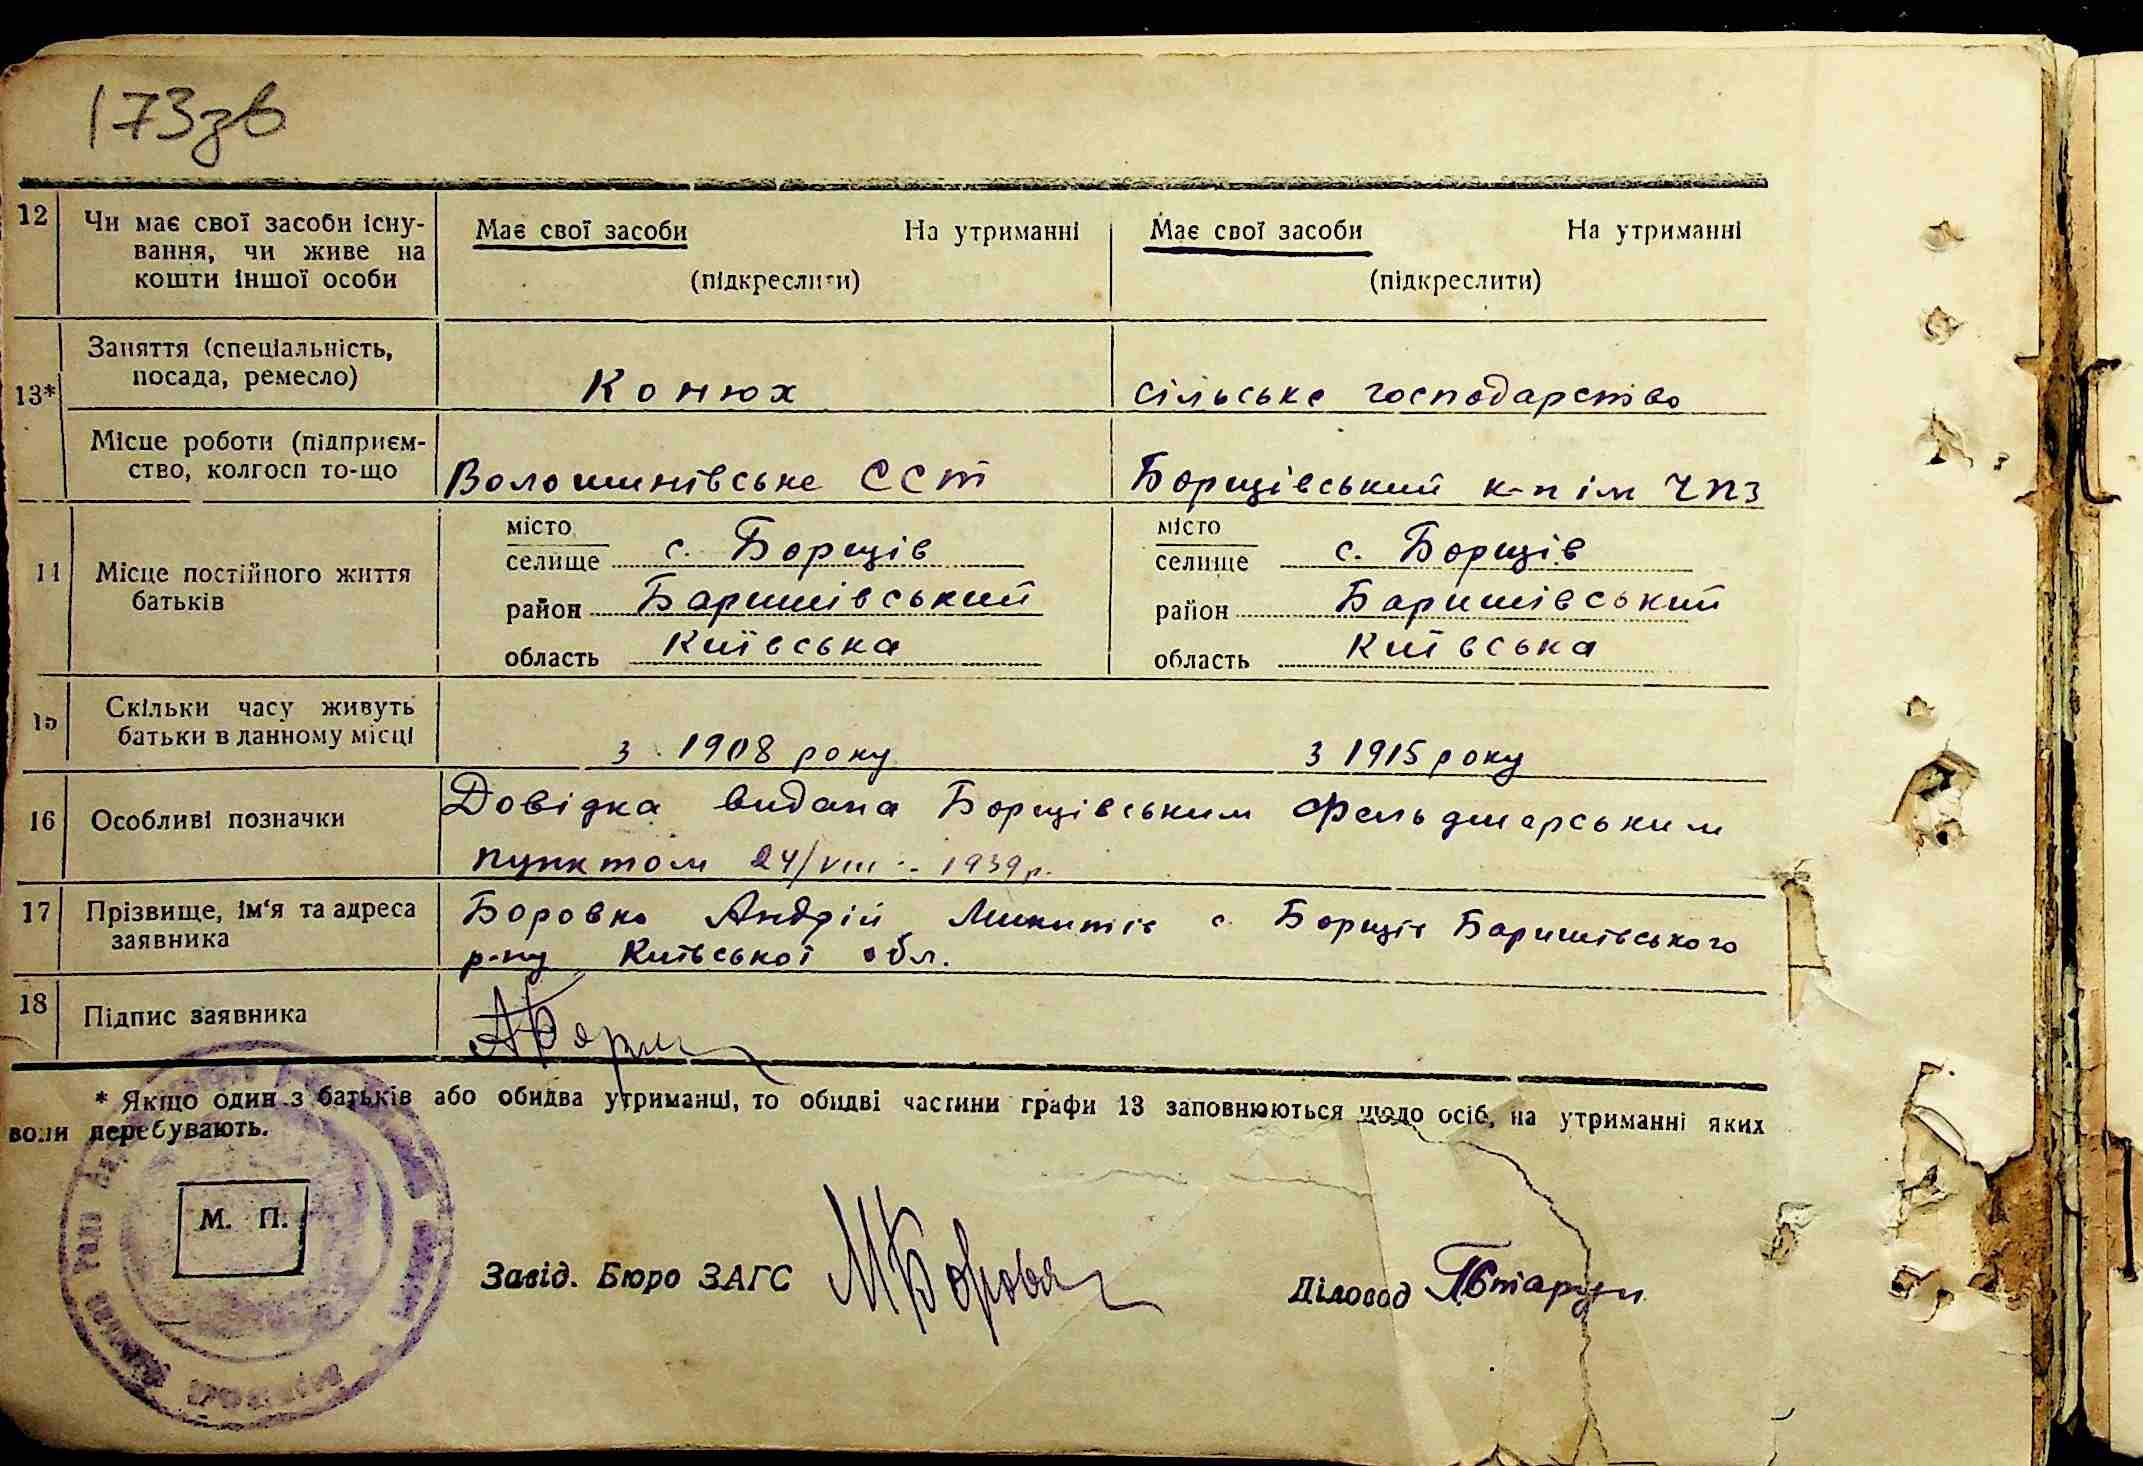 173зв
12 Чи має свої засоби існу-
вання, чи живе на
кошти іншої особи
Має свої засоби На утриманні
(підкреслити)
Має свої засоби На утриманні
(підкреслити)
13* Заняття (спеціальність,
посада, ремесло)
Конюх
сільське господарство
Місце роботи (підприєм-
ство, колгосп то-що
Волошинівське ССТ
Борщівський к-п ім ЧПЗ
14 Місце постійного життя
батьків
місто
селище с. Борщів
район Баришівський
область Київська
місто
селище с. Борщів
район Баришівський
область Київська
15 Скільки часу живуть
батьки в данному місці
з 1908 року
з 1915 року
16 Особливі позначки
Довідка видана Борщівським фельдшерським
пунктом 24/VIII - 1939р.
17 Прізвище, ім'я та адреса
заявника
Боровко Андрій Микитів с. Борщів Баришівського
р-ну Київської обл.
18 Підпис заявника
* Якщо один з батьків або обидва утриманці, то обидві частини графи 13 заповнюються щодо осіб, на утриманні яких
вони перебувають.
М. П.
Завід. Бюро ЗАГС
Діловод